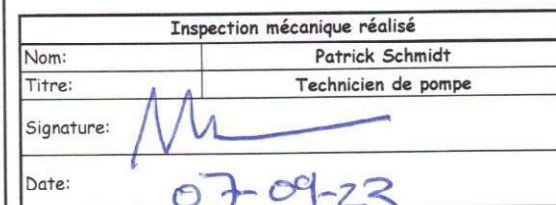 Inspection mécanique réalisé
Nom: Patrick Schmidt
Titre: Technicien de pompe
Signature:
Date: 07-09-23